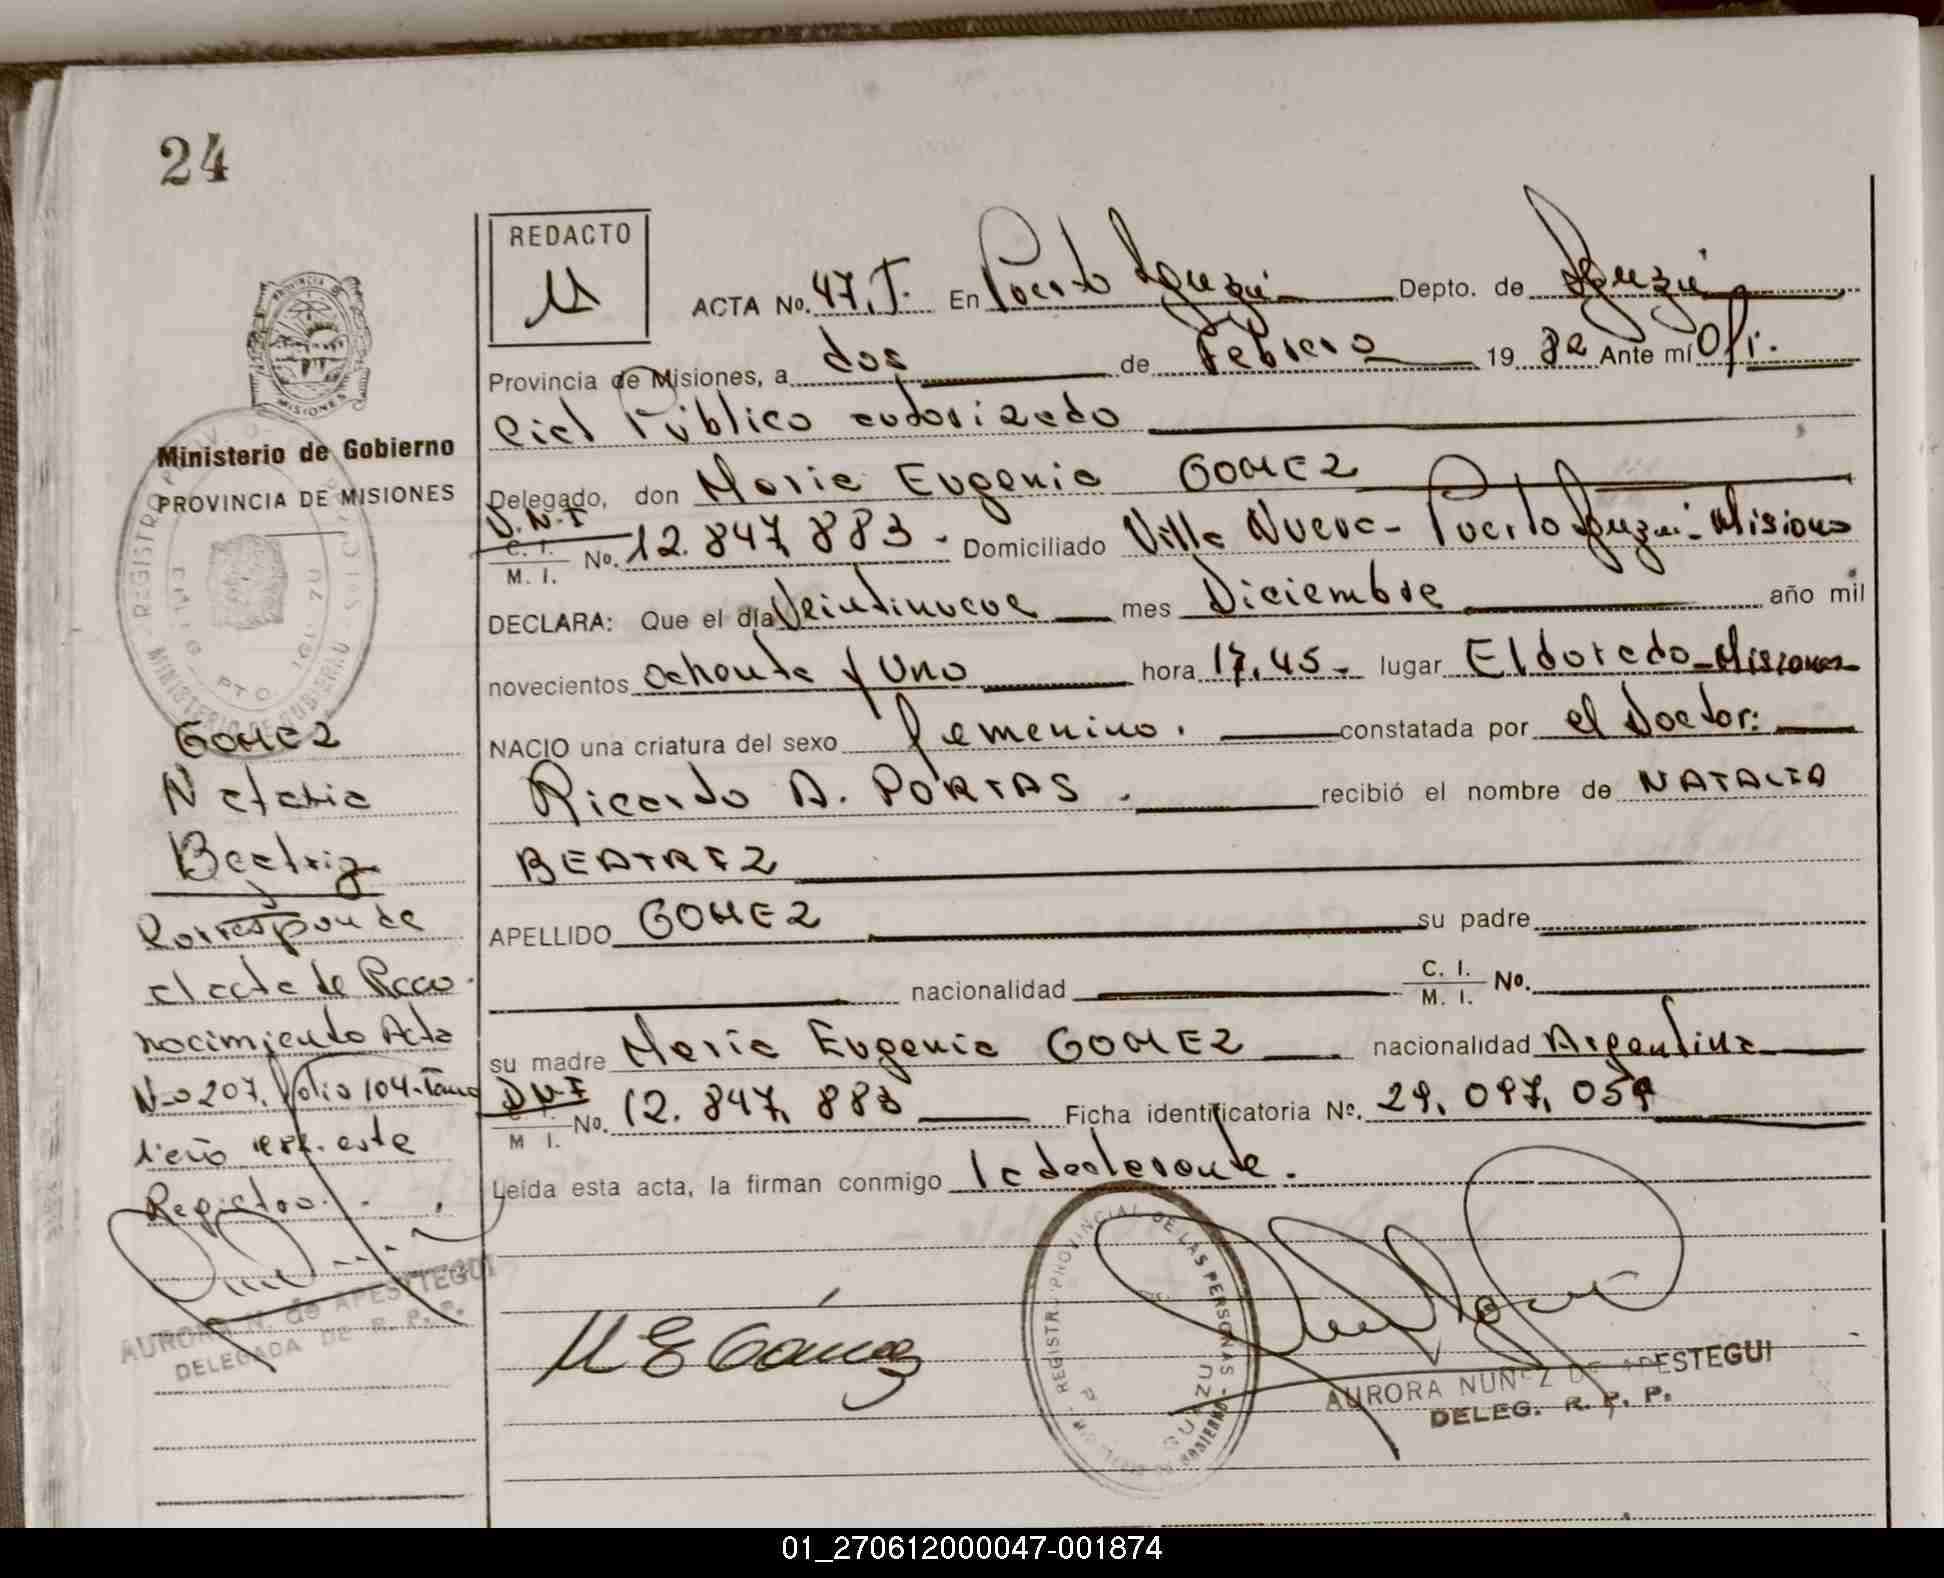 24
REDACTO
ACTA No. 47.T. En Puerto Iguazú Depto. de Iguazú
Provincia de Misiones, a dos de Febrero 19 82 Ante mí Ofi-
cial Público autorizado
PROVINCIA DE
MISIONES
Ministerio de Gobierno
PROVINCIA DE MISIONES
Delegado, don Maria Eugenia GOMEZ
D.N.I
C. I.
M. I. No. 12.847.883. Domiciliado Villa Nueva - Puerto Iguazú - Misiones
DECLARA: Que el día Veintinueve mes Diciembre año mil
novecientos ochenta y Uno hora 17,45 - lugar Eldorado - Misiones
NACIO una criatura del sexo femenino. constatada por el Doctor:
Ricardo A. PORTAS. recibió el nombre de NATALIA
BEATRIZ
APELLIDO GOMEZ su padre
nacionalidad C. I.
M. I. No.
su madre Maria Eugenia GOMEZ nacionalidad Argentina
D.N.I
M I. No. 12.847.883 Ficha identificatoria No. 29.097.059
Leída esta acta, la firman conmigo la declarante.
GOMEZ
Natalia
Beatriz
Corresponde
el acta de Reco-
nocimiento Acta
N-o 207. Folio 104. Tomo
1º año 1982. este
Registro.
AURORA N. de APESTEGUI
DELEGADA DE R. P. P.
M E Gómez
REGISTRO PROVINCIAL DE LAS PERSONAS
AURORA NUÑEZ DE APESTEGUI
DELEG. R. P. P.
01_270612000047-001874